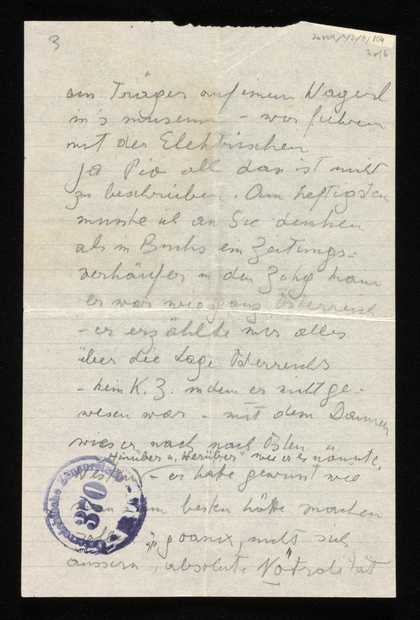 3
ein Träger auf einem Wagerl
in's museum – wir fuhren
mit der Elektrischen
Ja Pia all das ist nicht
zu beschreiben. Am heftigsten
musste ich an Sie denken
als in Buchs ein Zeitungs-
verkäufer in den Zug kam
er war Österreich
– er erzählte mir alles
über die Lage Österreichs
– kein K.Z. in dem er nicht ge-
wesen war – mit dem Daumen
wies er nach nach Osten u
"Hinüber u. Herüber" wie er es nannte.
Westen – er habe gewusst wie
man am besten hätte machen
goanix, nichts sich
äussern, absolute Nötralität
370